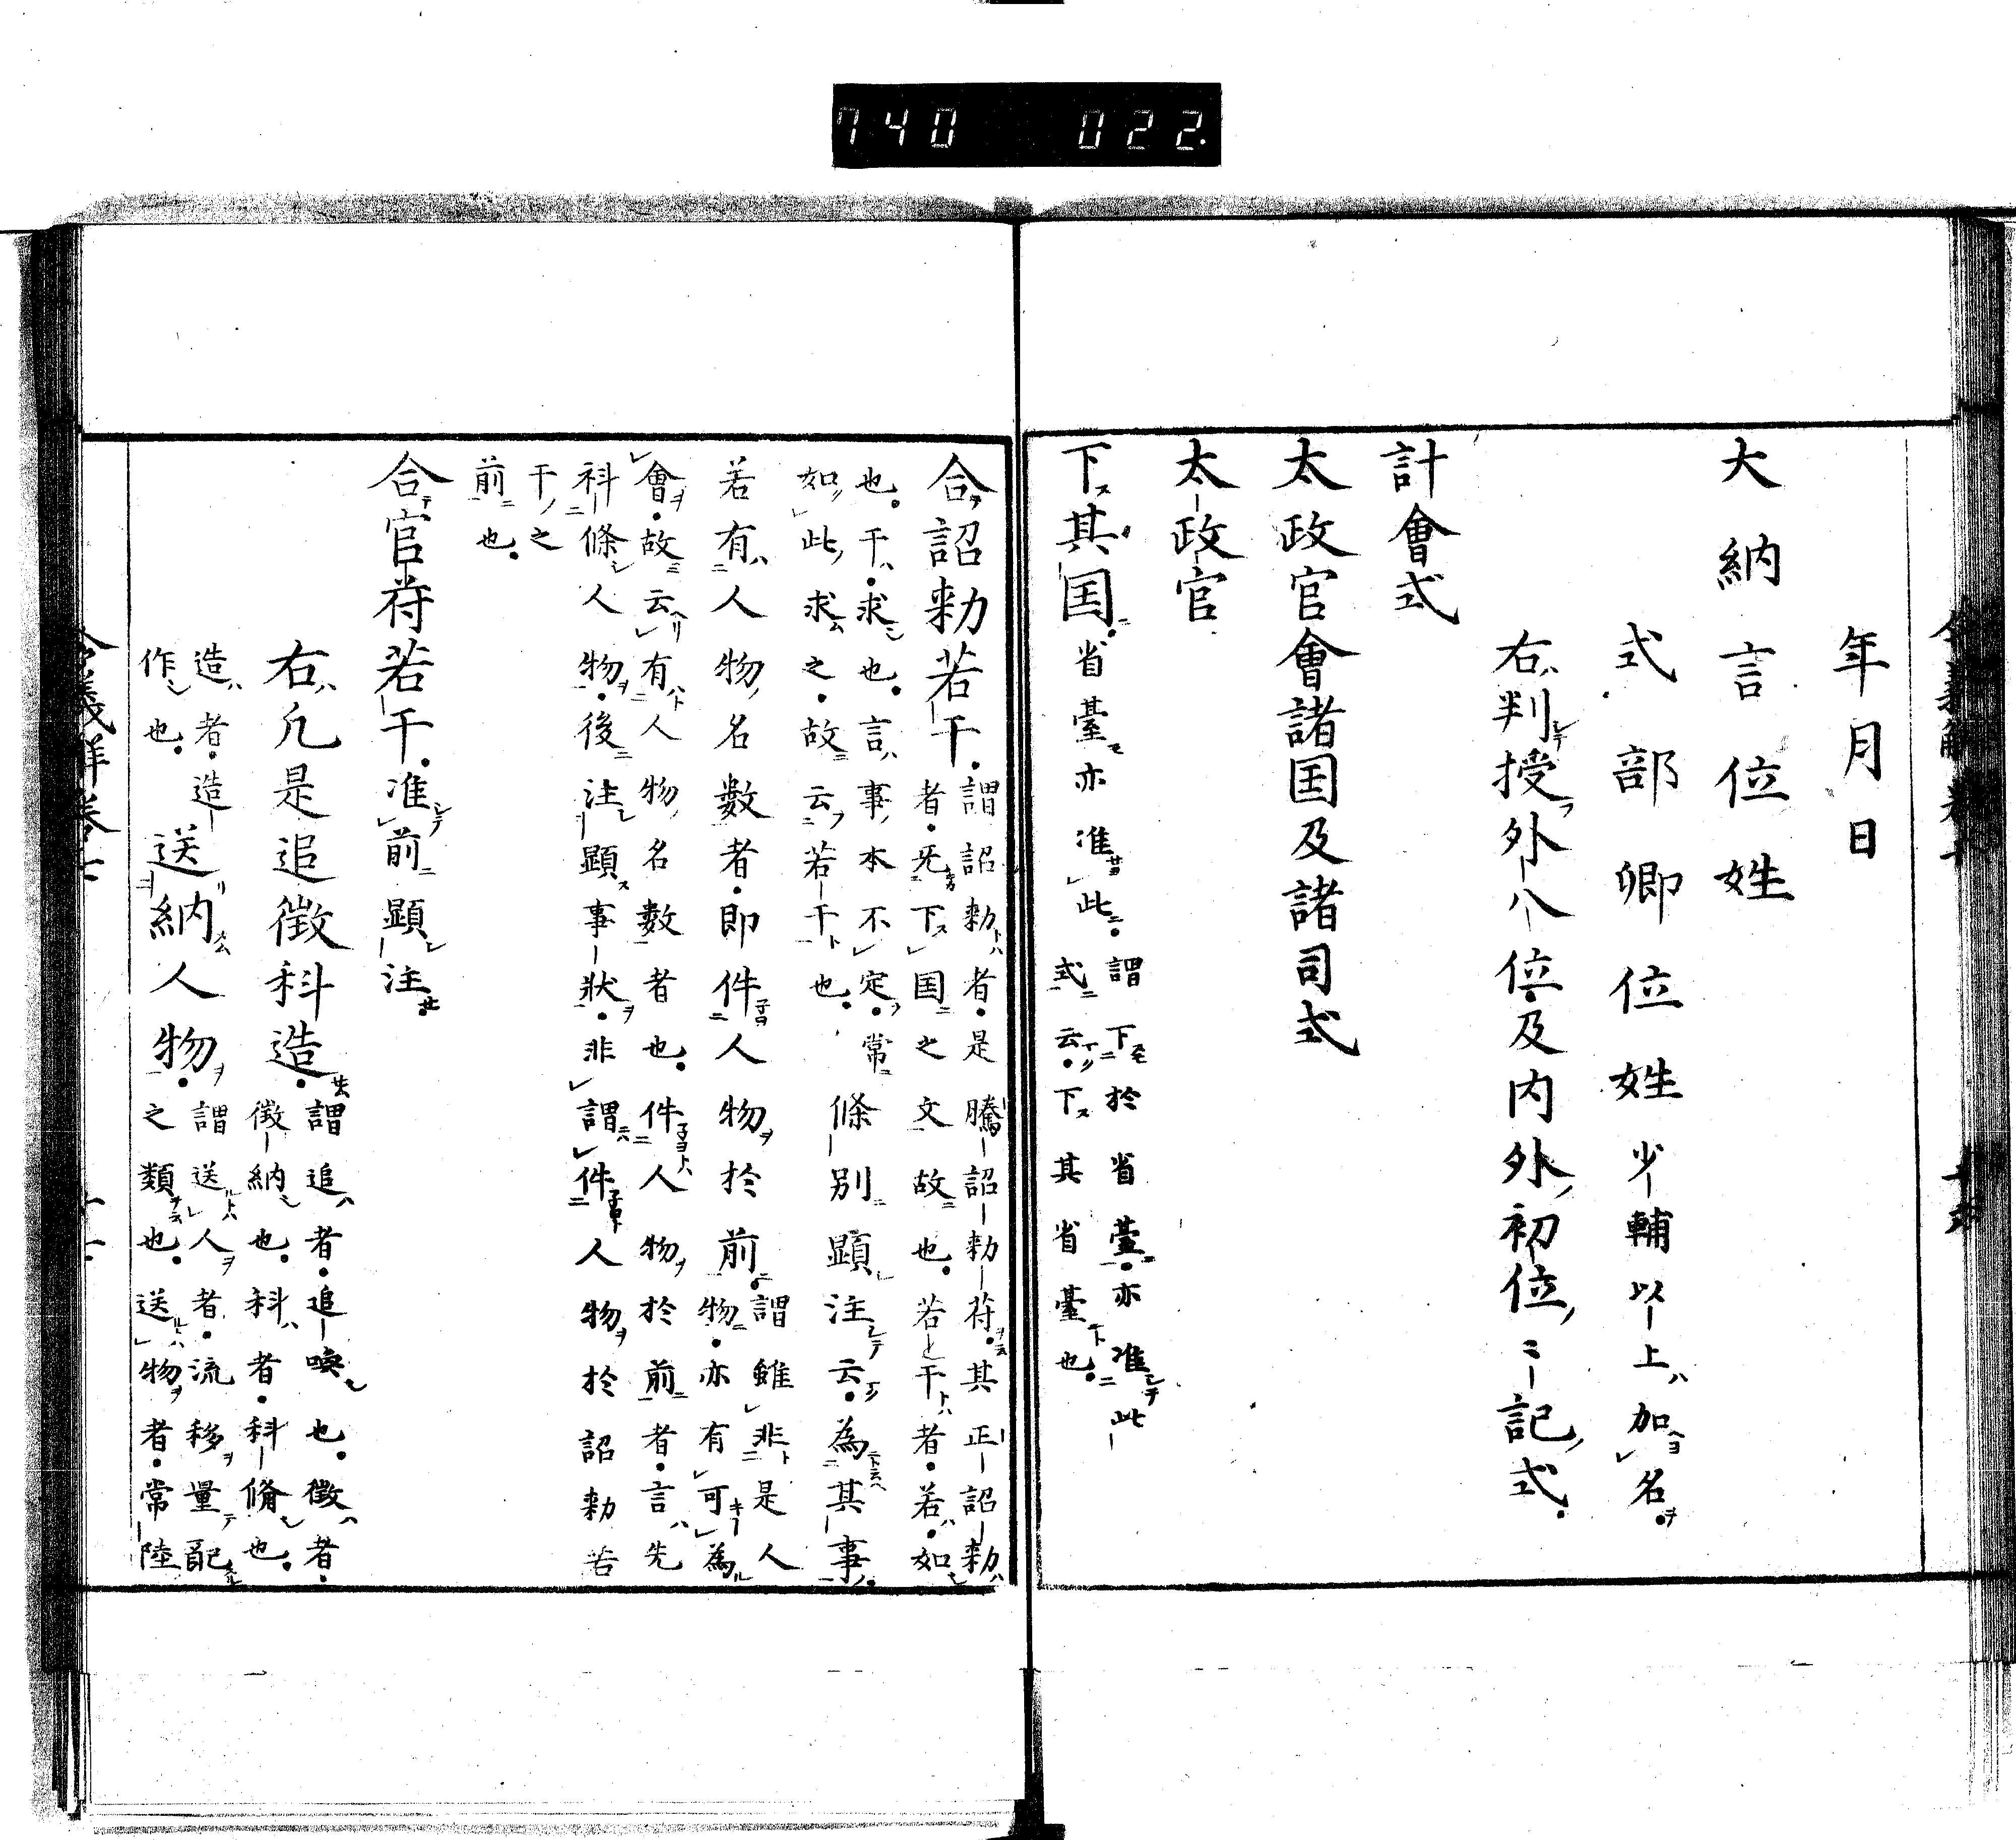 740 022
年月日
大納言位姓
式部卿位姓少輔以上加名
右判授外八位及内外初位々記式
計會式
太政官會諸国及諸司式
太政官
下其国省臺亦准此謂下於省臺亦准此
式云下其省臺也
合詔勅若干謂詔勅者是騰詔勅符其正詔勅
者死下国之文故也若干者若如
也干求也言事本不定常條別顕注云為其事
如此求之故云若干也
若有人物名數者即件人物於前謂雖非是人
物亦有可為
會故云有人物名數者也件人物於前者言先
科條人物後注顕事状非謂件人物於詔勅若
干之
前也
合官符若干准前顕注
右凡是追徴科造謂追者追喚也徴者
徴納也科者科脩也
造者造
作也送納人物謂送人者流移量配
之類也送物者常陸